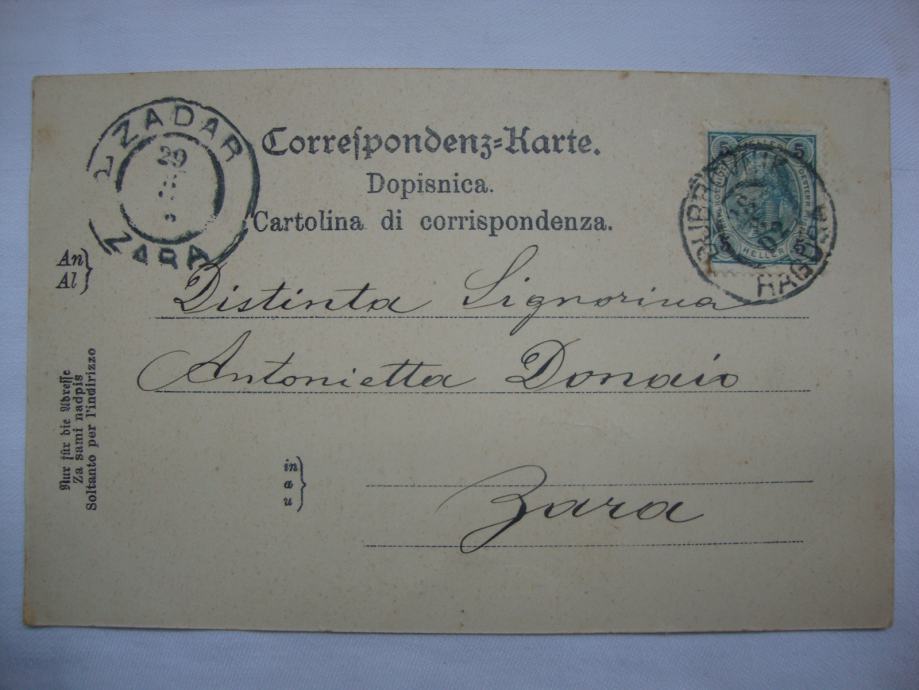 ZADAR
29
ZARA
Correspondenz-Karte.
Dopisnica.
Cartolina di corrispondenza.
5 5
HELLER
RAGUSA
An
Al
Distinta Signorina
Antonietta Donaio
in
a
u
Zara
Nur für die Adresse
Za sami nadpis
Soltanto per l'indirizzo